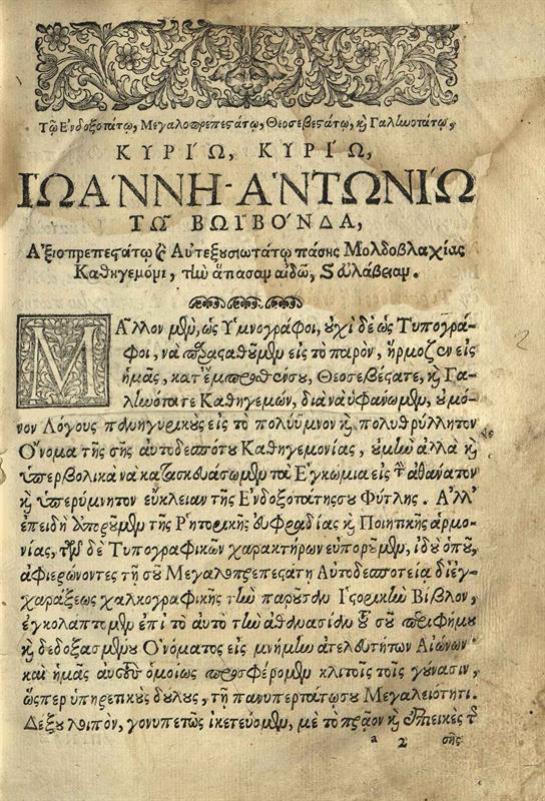 Τῷ Ἐνδοξοτάτῳ, Μεγαλοπρεπεστάτῳ, Θεοσεβεστάτῳ, καὶ Γαληνοτάτῳ,
ΚΥΡΙῼ, ΚΥΡΙῼ,
ΙΩΑΝΝΗ-ΑΝΤΩΝΙῼ
ΤΩ ΒΩΪΒΟΝΔΑ,
Ἀξιοπρεπεστάτῳ καὶ Αὐτεξουσιωτάτῳ πάσης Μολδοβλαχίας
Καθηγεμόνι, τὴν ἅπασαν αἰδῶ, καὶ εὐλάβειαν.
Μᾶλλον μὲν, ὡς Ὑμνογράφοι, οὐχὶ δὲ ὡς Τυπογρά-
φοι, νὰ παρασταθοῦμεν εἰς τὸ παρὸν, ἥρμοζεν εἰς
ἡμᾶς, κατ' ἔμπροσθένσου, Θεοσεβέστατε, καὶ Γα-
ληνότατε Καθηγεμών, διὰ νὰ ὑφανωμεν, οὐ μό-
νον Λόγους πανηγυρικοὺς εἰς τὸ πολύϋμνον καὶ πολυθρύλλητον
Ὄνομα τῆς σῆς αὐτοδεσπότου Καθηγεμονίας, ἀλλὰ καὶ
ὑπερβολικὰ νὰ κατασκευάσωμεν τὰ Ἐγκώμια εἰς τὴν ἀθάνατον
καὶ ὑπερύμνητον εὔκλειαν τῆς Ἐνδοξοτάτηςσου Φύτλης. Ἀλλ'
ἐπειδὴ ἀποροῦμεν τῆς Ῥητορικῆς εὐφραδίας καὶ Ποιητικῆς ἁρμο-
νίας, τῶν δὲ Τυπογραφικῶν χαρακτήρων εὐποροῦμεν, ἰδοὺ ὁποῦ,
ἀφιερώνοντες τῇ σοῦ Μεγαλοπρεπεστάτῃ Αὐτοδεσποτείᾳ διεγ-
χαράξεως χαλκογραφικῆς τὴν παροῦσαν Ἱστορικὴν Βίβλον,
ἐγκολάπτομεν ἐπὶ τὸ αὐτὸ τὴν ἀθανασίαν τοῦ σοῦ περιφήμου
καὶ δεδοξασμένου Ὀνόματος εἰς μνήμην ἀτελευτήτων Αἰώνων
καὶ ἡμᾶς αὐτοὺς ὁμοίως προσφέρομεν κλιτοῖς τοῖς γόνασιν,
ὥσπερ ὑπηρετικοὺς δούλους, τῇ πανυπερτάτῳσου Μεγαλειότητι.
Δέξου λοιπὸν, γονυπετῶς ἱκετεύομεν, μὲ τὸ πρᾶον καὶ ἐπιεικὲς τῆς
a 2 σῆς
2